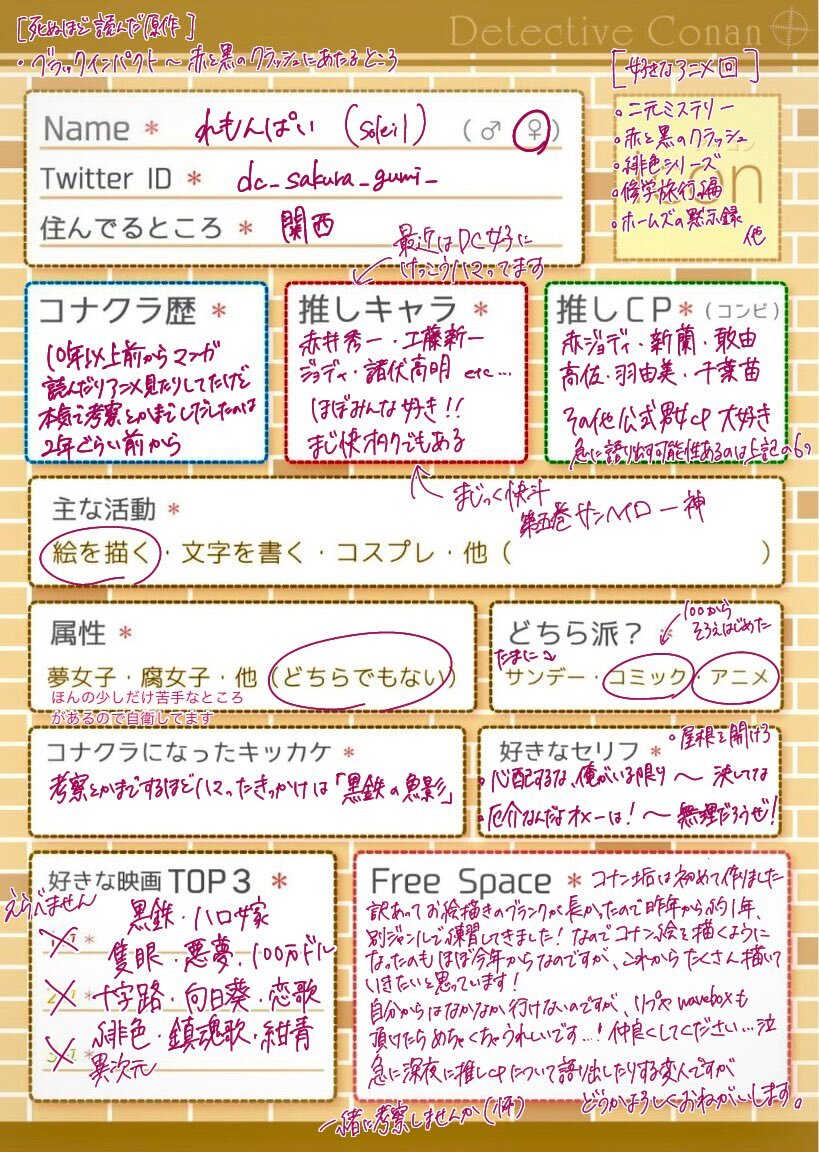 [死ぬほど読んだ原作]
・ブラックインパクト〜赤と黒のクラッシュにあたるところ
Detective Conan
[好きなアニメ回]
○二元ミステリー
○赤と黒のクラッシュ
○緋色シリーズ
○修学旅行編
○ホームズの黙示録
他
Name * れもんぱい (soleil) (♂ ♀)
Twitter ID * dc_sakura_gumi_
住んでるところ * 関西
最近はDC女子に
けっこうハマってます
コナクラ歴 *
10年以上前からマンガ
読んだりアニメ見たりしてたけど
本気で考察とかまでしだしたのは
2年ぐらい前から
推しキャラ *
赤井秀一・工藤新一
ジョディ・諸伏高明 etc...
ほぼみんな好き!!
まじ快オタクでもある
推しCP * (コンビ)
赤ジョディ・新蘭・敢由
高佐・羽由美・千葉苗
その他公式男女CP 大好き
急に語り出す可能性あるのは上記の6つ
まじっく快斗
第五巻サンヘイロー神
主な活動 *
絵を描く・文字を書く・コスプレ・他( )
属性 *
夢女子・腐女子・他(どちらでもない)
ほんの少しだけ苦手なところ
があるので自衛してます
どちら派? *
100から
そろえはじめた
たまに
サンデー・コミック・アニメ
コナクラになったキッカケ *
考察とかまでするほどハマったきっかけは「黒鉄の魚影」
好きなセリフ *
○屋根を開けろ
・心配するな、俺がいる限り〜決してな
・厄介なんだよオメーは!〜無理だろうぜ!
好きな映画 TOP3 *
えらべません
黒鉄・ハロ嫁
隻眼・悪夢・100万ドル
十字路・向日葵・恋歌
緋色・鎮魂歌・紺青
異次元
Free Space *
コナン垢は初めて作りました
訳あってお絵描きのブランクが長かったので昨年から約1年、
別ジャンルで練習してきました!なのでコナン絵を描くように
なったのもほぼ今年からなのですが、これからたくさん描いて
いきたいと思っています!
自分からはなかなか行けないのですが、リプやwaveboxも
頂けたらめちゃくちゃうれしいです...!仲良くしてください...泣
急に深夜に推しCPについて語り出したりする変人ですが
どうかよろしくおねがいします。
一緒に考察しませんか(圧)